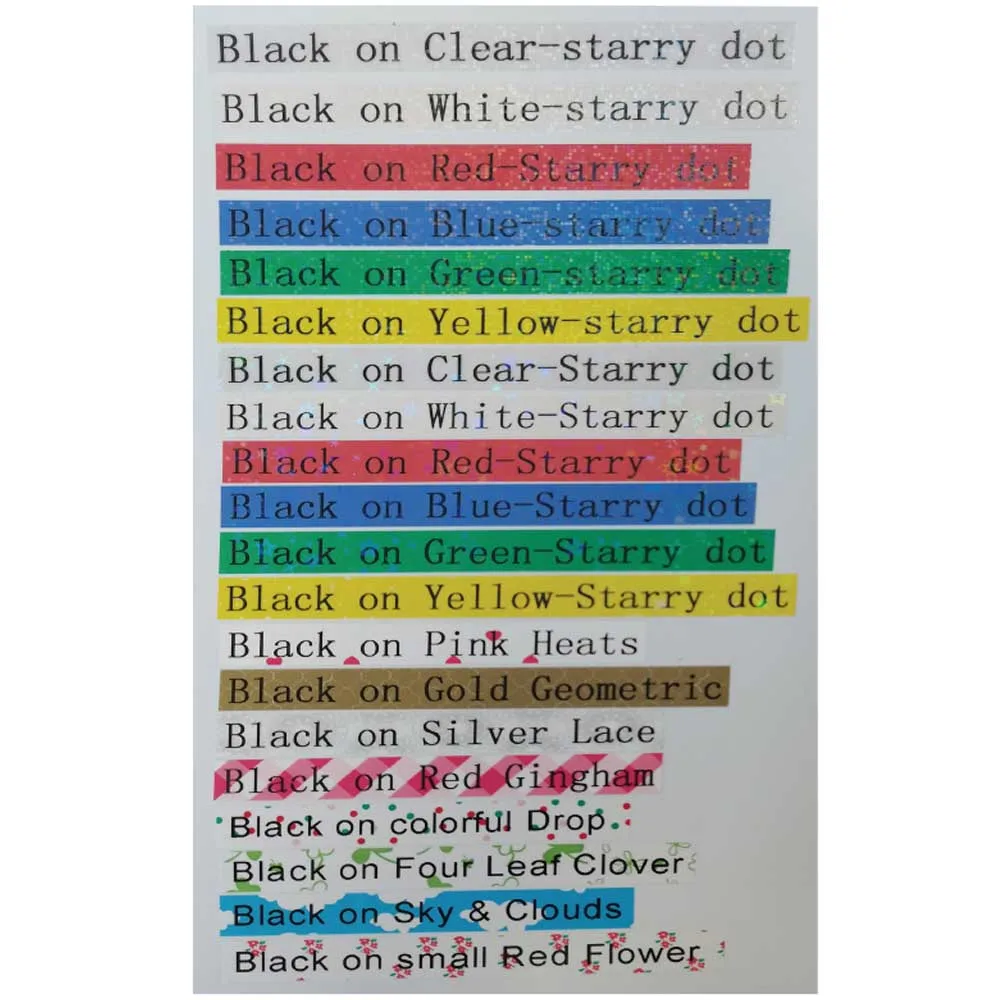 Black on Clear-starry dot
Black on White-starry dot
Black on Red-Starry dot
Black on Blue-starry dot
Black on Green-starry dot
Black on Yellow-starry dot
Black on Clear-Starry dot
Black on White-Starry dot
Black on Red-Starry dot
Black on Blue-Starry dot
Black on Green-Starry dot
Black on Yellow-Starry dot
Black on Pink Heats
Black on Gold Geometric
Black on Silver Lace
Black on Red Gingham
Black on colorful Drop
Black on Four Leaf Clover
Black on Sky & Clouds
Black on small Red Flower